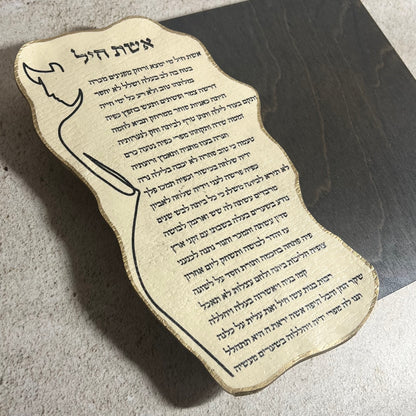 אשת חיל
אשת חיל מי ימצא ורחוק מפנינים מכרה
בטח בה לב בעלה ושלל לא יחסר
גמלתהו טוב ולא רע כל ימי חייה
דרשה צמר ופשתים ותעש בחפץ כפיה
היתה כאניות סוחר ממרחק תביא לחמה
ותקם בעוד לילה ותתן טרף לביתה וחק לנערותיה
זממה שדה ותקחהו מפרי כפיה נטעה כרם
חגרה בעוז מתניה ותאמץ זרועתיה
טעמה כי טוב סחרה לא יכבה בלילה נרה
ידיה שלחה בכישור וכפיה תמכו פלך
כפיה פרשה לעני וידיה שלחה לאביון
לא תירא לביתה משלג כי כל ביתה לבוש שנים
מרבדים עשתה לה שש וארגמן לבושה
נודע בשערים בעלה בשבתו עם זקני ארץ
סדין עשתה ותמכור וחגור נתנה לכנעני
עוז והדר לבושה ותשחק ליום אחרון
פיה פתחה בחכמה ותורת חסד על לשונה
צופיה הליכות ביתה ולחם עצלות לא תאכל
קמו בניה ויאשרוה בעלה ויהללה
רבות בנות עשו חיל ואת עלית על כלנה
שקר החן והבל היופי אשה יראת ה היא תתהלל
תנו לה מפרי ידיה ויהללוה בשערים מעשיה